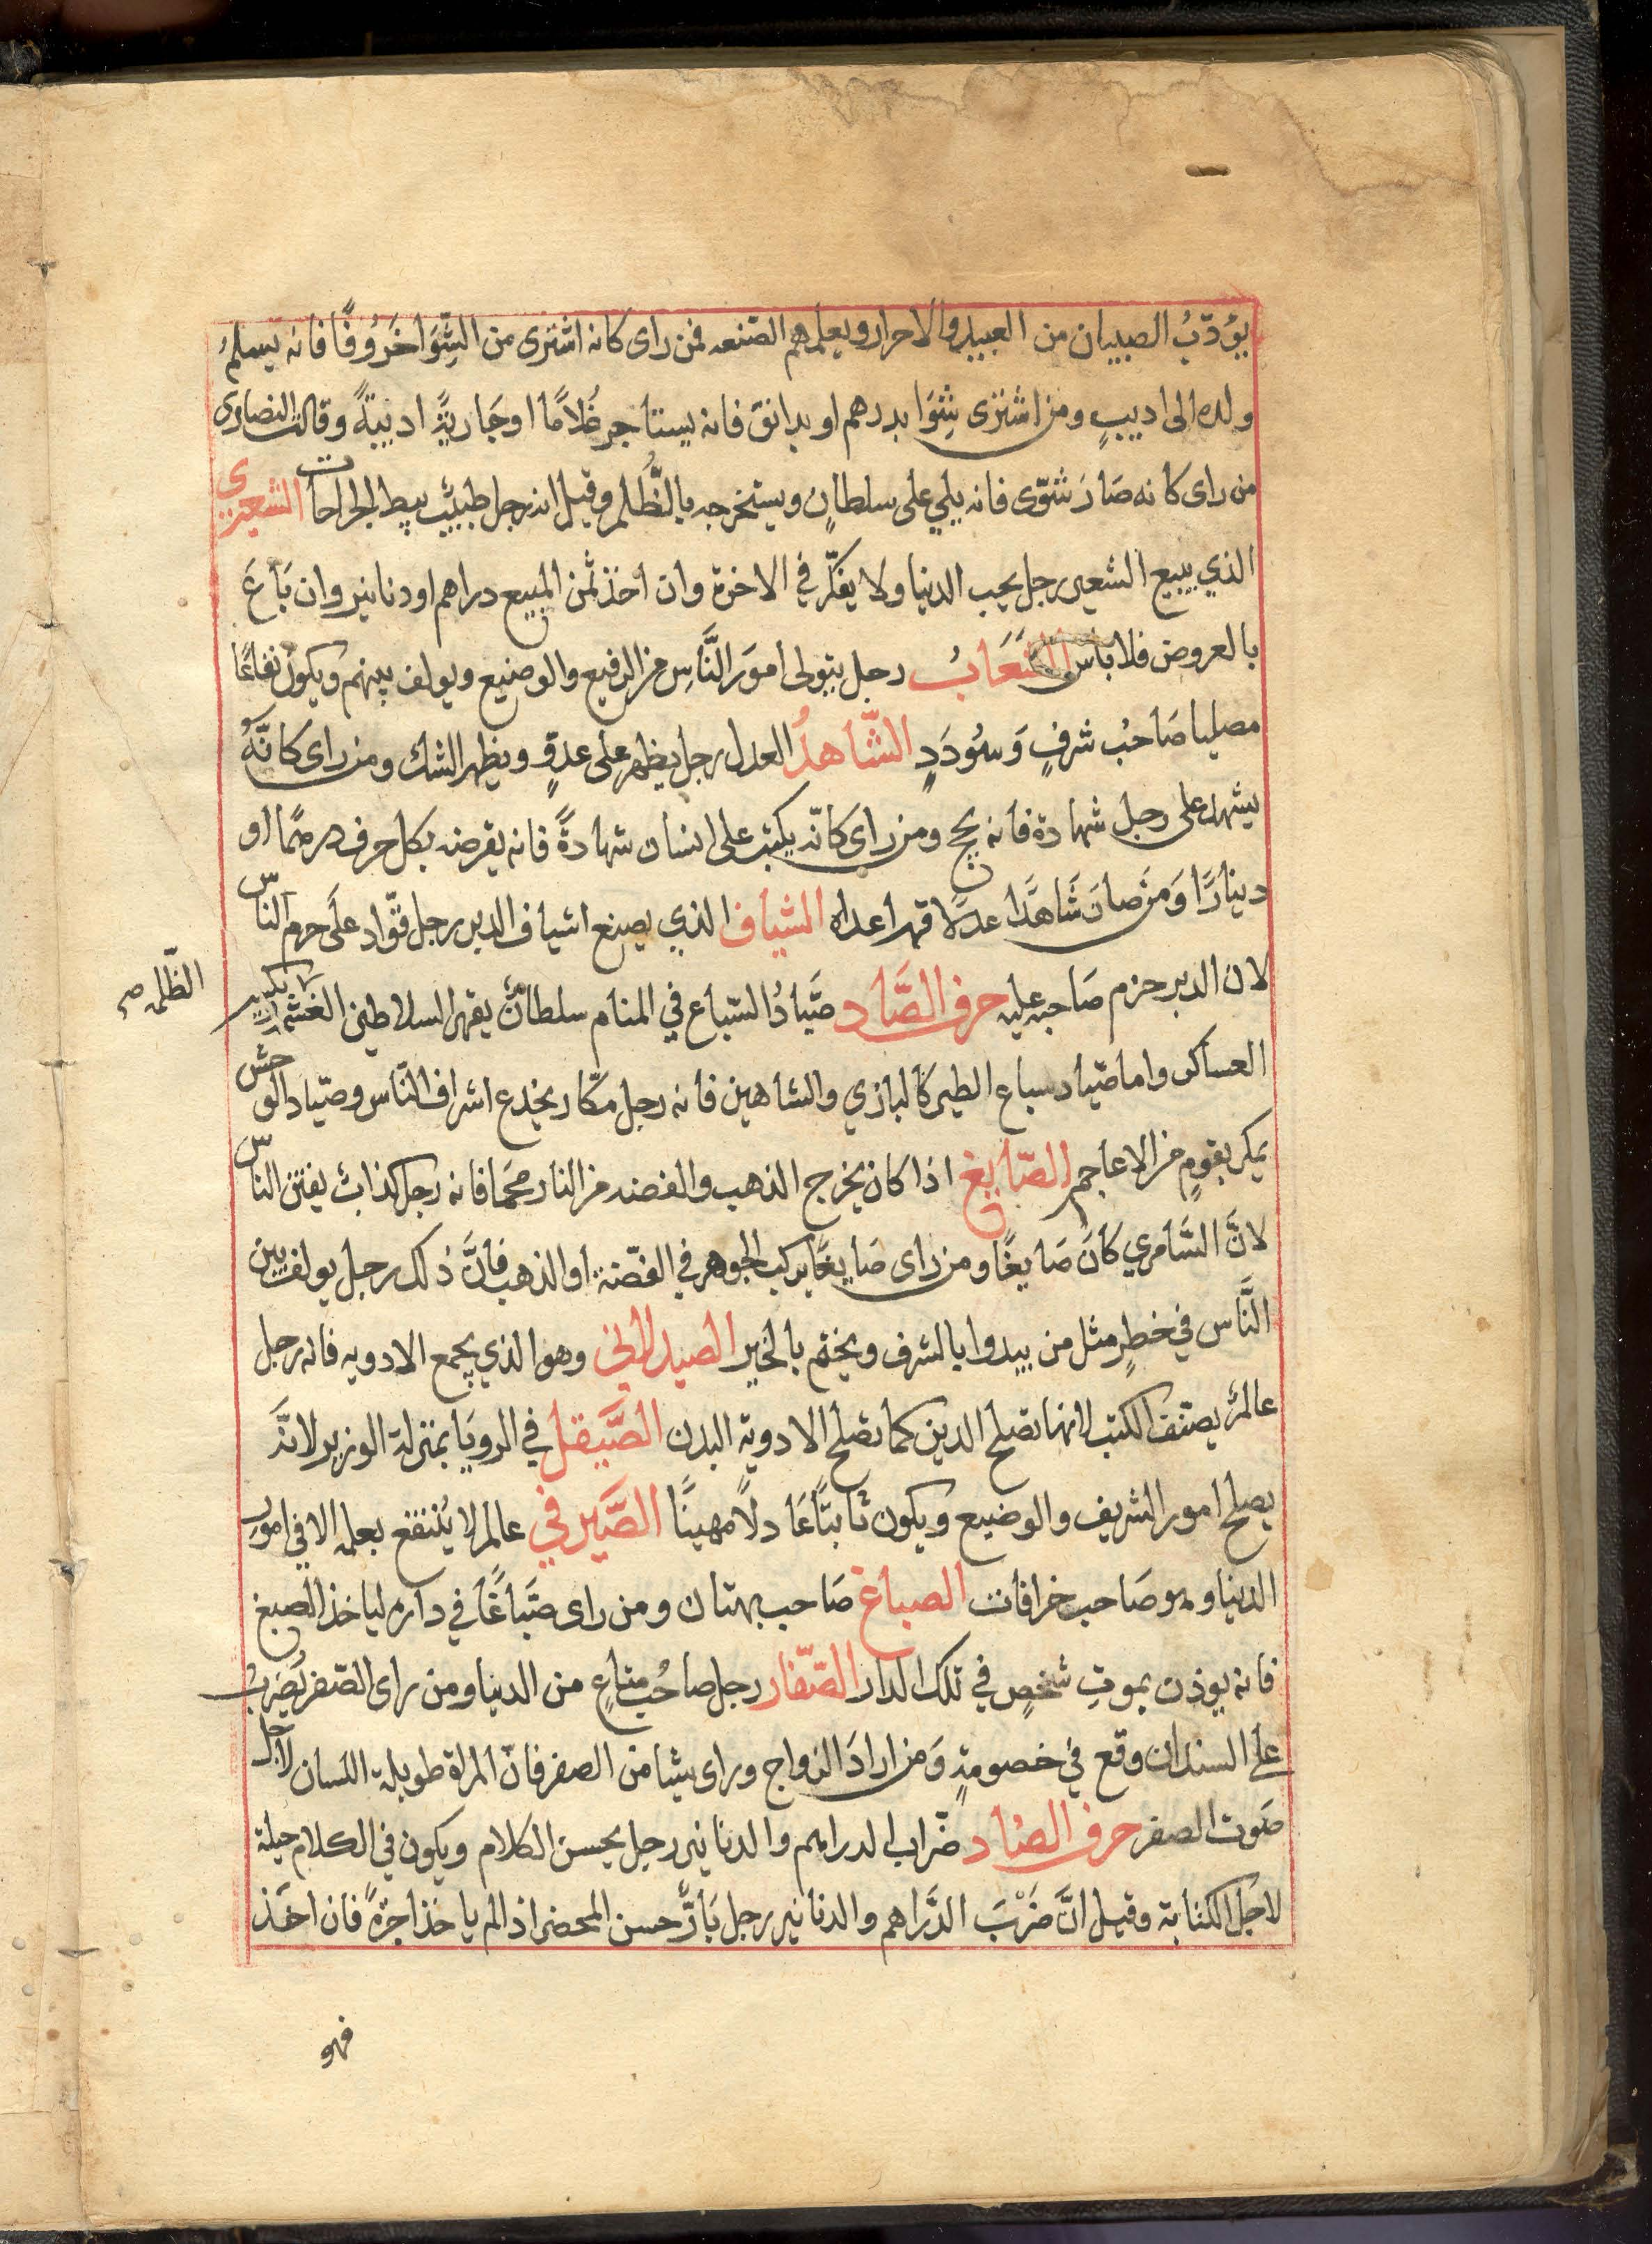 يؤدّبُ الصبيان من العبيد والاحرار ويعلمهم الصّنعه فمن راى كانه اشترى من الشِّوَا خَرُوفًا فانه يسلم
ولده الى اديبٍ ومن اشترى شِوَا بدرهم او بدانق فانه يستاجر غُلامًا او جَاريَةً اديبَةً وقالت النصارى
من راى كانه صَارَ شوّى فانه يلي على سلطانٍ ويستخرجه بالظُّلم وقيل انه رجل طبيب يبط الجراحات الشعيرى
الذي يبيع الشعير رجل يحب الدنيا ولا يفكّر في الاخرة وان أخذ ثمن المبيع دراهم او دنانير وان بَاعَ
بالعروض فلا باس الشعَابُ رجل يتولى امورَ النَّاسِ من الرفيع والوضيع ويولف بينهم ويكون نفاعًا
مصليا صَاحبُ شرفٍ وَسُودَدٍ الشّاهدُ العدل رجل يظهر على عدوٍ ويظهر الشك ومن راى كانَّهُ
يشهد على رجل شهادة فانه يحج ومن راى كانّه يكتب على انسان شهادةً فانه يقرضه بكل حرف درهمًا او
دينارًا وَمَن صارَ شَاهدًا عدلًا قهر اعداه الشياف الذي يصنع اشياف الدبر رجل قوّاد على حرم الناس
لان الدبر حزم صَاحبه عليه حرف الصَّاد صَيَّادُ السّباع في المنام سلطانٌ يقهر السلاطين الغشم ويكسر
الظّلمه صح
العساكر واما صيّاد سباع الطير كالبازي والشاهين فانه رجل مكّار يخدع اشراف النّاس وصيّاد الوحش
يمكر بقومٍ من الاعاجم الصّايغ اذا كان يخرج الذهب والفضه من النار محمَا فانه رجل كذاب يفتن الناس
لانَّ السَّامري كانَ صَايغًا ومن راى صَايغًا يركب الجوهر في الفضّة او الذهب فانَّ ذلك رجل يولف بين
النَّاس في خطٍ مثل من يبدوا بالشرف ويختم بالخير الصيدلاني وهو الذي يجمع الادويه فانه رجل
عالمٌ يصنف الكتب لانها تصلح الدين كما تصلح الادوية البدن الصَّيقل في الرويَا بمنزلة الوزير لانَّه
يصلح امور الشريف والوضيع ويكون ثابتًا عَادلًا مهينًا الصَّيرفي عالم لا يُنتفع بعلمه الا في امور
الدنيا وهو صَاحب خرافات الصباغ صَاحب بهتان ومن راى صَبَّاغًا في داره لياخذ الصبغ
فانه يوذن بموتِ شخصٍ في تلك الدار الصّفّار رجل صاحُب متاعٍ من الدنيا ومن راى الصّفر يُضرَبُ
على السندان وقع في خصومةٍ وَمن ارادَ الزواج وراى شيًا من الصفر فانّ المراة طويلة اللسان لاجل
صَوت الصفر حرف الضاد ضّراب الدراهم والدنانير رجل يحسن الكلام ويكون في الكلام حيلة
لاجل الكتابة وقيل انَّ ضَرْبَ الدَّراهم والدنانير رجل بَارٌّ حسن المحضر اذا لم ياخذ اجرَةً فان اخذ
فهو